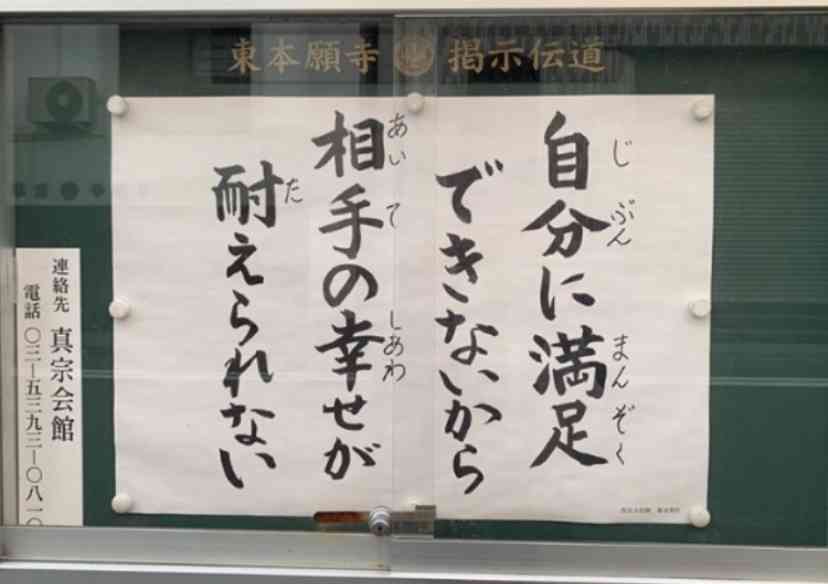 東本願寺 掲示伝道
自分に満足
じぶん まんぞく
できないから
相手の幸せが
あいて しあわ
耐えられない
た
連絡先 真宗会館
電話 〇三―五三九三―〇八一〇